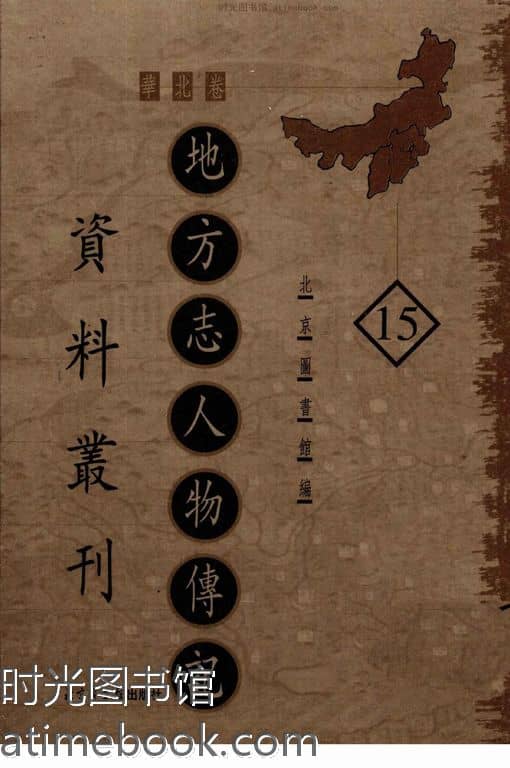 时光图书馆 atimebook.com
華北卷
15
北京圖書館編
地方志人物傳記
資料叢刊
时光图书馆
atimebook.com